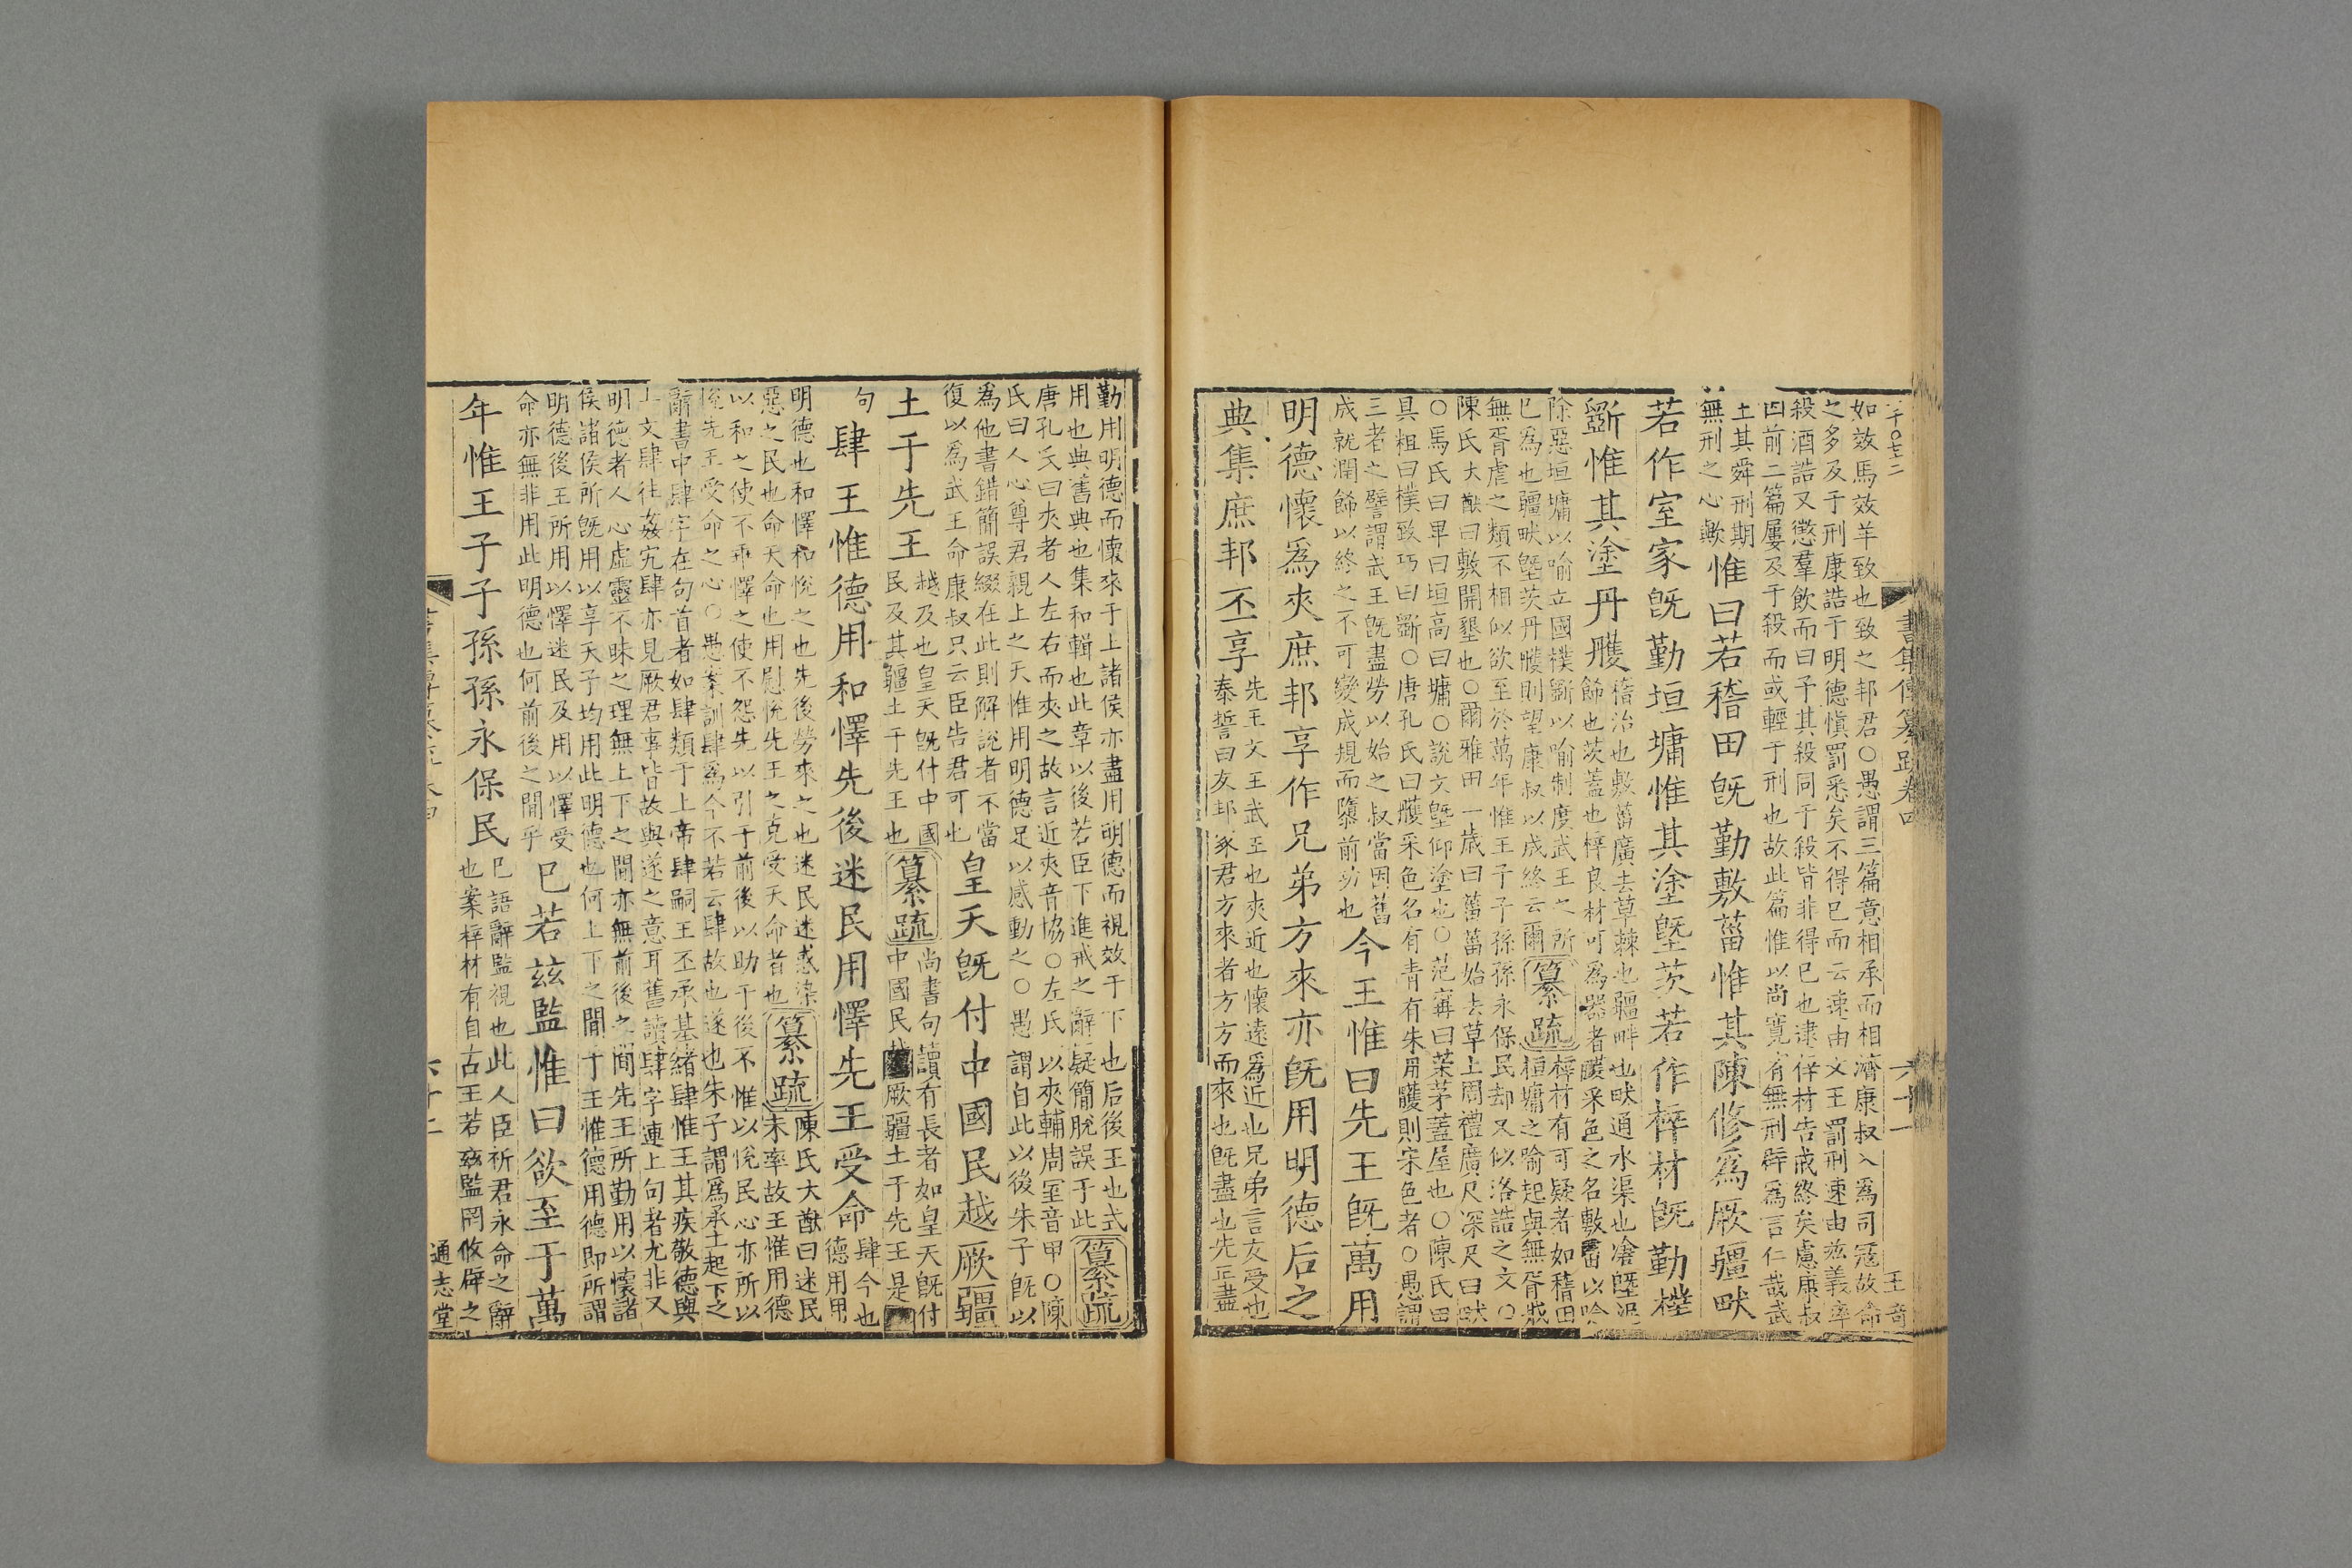 如效馬效羊致也致之邦君○愚謂三篇意相承而相濟康叔入爲司冦故命
之多及于刑康誥于明德愼罰悉矣不得已而云速由文王罰刑速由兹義率
殺酒誥又懲羣飲而曰予其殺同于殺皆非得已也逮梓材告戒終矣慮康叔
四前二篇屢及于殺而或輕于刑也故此篇惟以尚寛宥無刑辟爲言仁哉武
王其舜刑期
無刑之心歟
惟曰若稽田旣勤敷菑惟其陳修爲厥疆畎
若作室家旣勤垣墉惟其塗塈茨若作梓材旣勤樸
斲惟其塗丹雘
稽治也敷菑廣去草棘也疆畔也畎通水渠也塗塈泥
飾也茨蓋也梓良材可爲器者雘采色之名敷菑以喻
除惡垣墉以喻立國樸斲以喻制度武王之所
已爲也疆畎塈茨丹雘則望康叔以成終云爾
纂疏
梓材有可疑者如稽田
垣墉之喻起與無胥戕
無胥虐之類不相似欲至於萬年惟王子子孫孫永保民却又似洛誥之文○
陳氏大猷曰敷開墾也○爾雅田一歲曰菑菑始去草上周禮廣尺深尺曰畎
○馬氏曰卑曰垣高曰墉○說文塈仰塗也○范甯曰茨茅蓋屋也○陳氏曰
具粗曰樸致巧曰斲○唐孔氏曰雘采色名有青有朱用雘則朱色者○愚謂
三者之譬謂武王旣盡勞以始之叔當因舊
成就潤飾以終之不可變成規而隳前功也
今王惟曰先王旣萬用
明德懷爲夾庶邦享作兄弟方來亦旣用明德后之
典集庶邦丕享
先王文王武王也夾近也懷遠爲近也兄弟言友愛也
泰誓曰友邦冢君方來者方方而來也旣盡也先王盡
勤用明德而懷來于上諸侯亦盡用明德而視效于下也后後王也式
用也典舊典也集和輯也此章以後若臣下進戒之辭疑簡脫誤于此
纂疏
唐孔氏曰夾者人左右而夾之故言近夾音協○左氏以夾輔周室音甲○陳
氏曰人心尊君親上之天惟用明德足以感動之○愚謂自此以後朱子旣以
爲他書錯簡誤綴在此則解說者不當
復以爲武王命康叔只云臣告君可也
皇天旣付中國民越厥疆
土于先王
越及也皇天旣付中國
民及其疆土于先王也
纂疏
尚書句讀有長者如皇天旣付
中國民越厥疆土于先王是
句
肆王惟德用和懌先後迷民用懌先王受命
肆今也
德用用
明德也和懌和悅之也先後勞來之也迷民迷惑染
惡之民也命天命也用慰悅先王之克受天命者也
纂疏
陳氏大猷曰迷民
未率故王惟用德
以和之使不乖懌之使不怨先以引于前後以助于後不惟以悅民心亦所以
後先王受命之心○愚案訓肆爲今不若云肆故也遂也朱子謂爲承上起下之
辭書中肆字在句首者如肆類于上帝肆嗣王丕承基緒肆惟王其疾敬德與
上文肆往姦宄肆亦見厥君事皆故與遂之意耳舊讀肆字連上句者尤非又
明德者人心虛靈不昧之理無上下之間亦無前後之間先王所勤用以懷諸
侯諸侯所旣用以享天子均用此明德也何上下之間于王惟德用德即所謂
明德後王所用以懌迷民及用以懌受
命亦無非用此明德也何前後之間乎
已若兹監惟曰欲至于萬
年惟王子子孫孫永保民
已語辭監視也此人臣祈君永命之辭
也案梓材有自古王若兹監罔攸辟之
書集傳纂疏卷四
六十一
王奇
六十二
通志堂